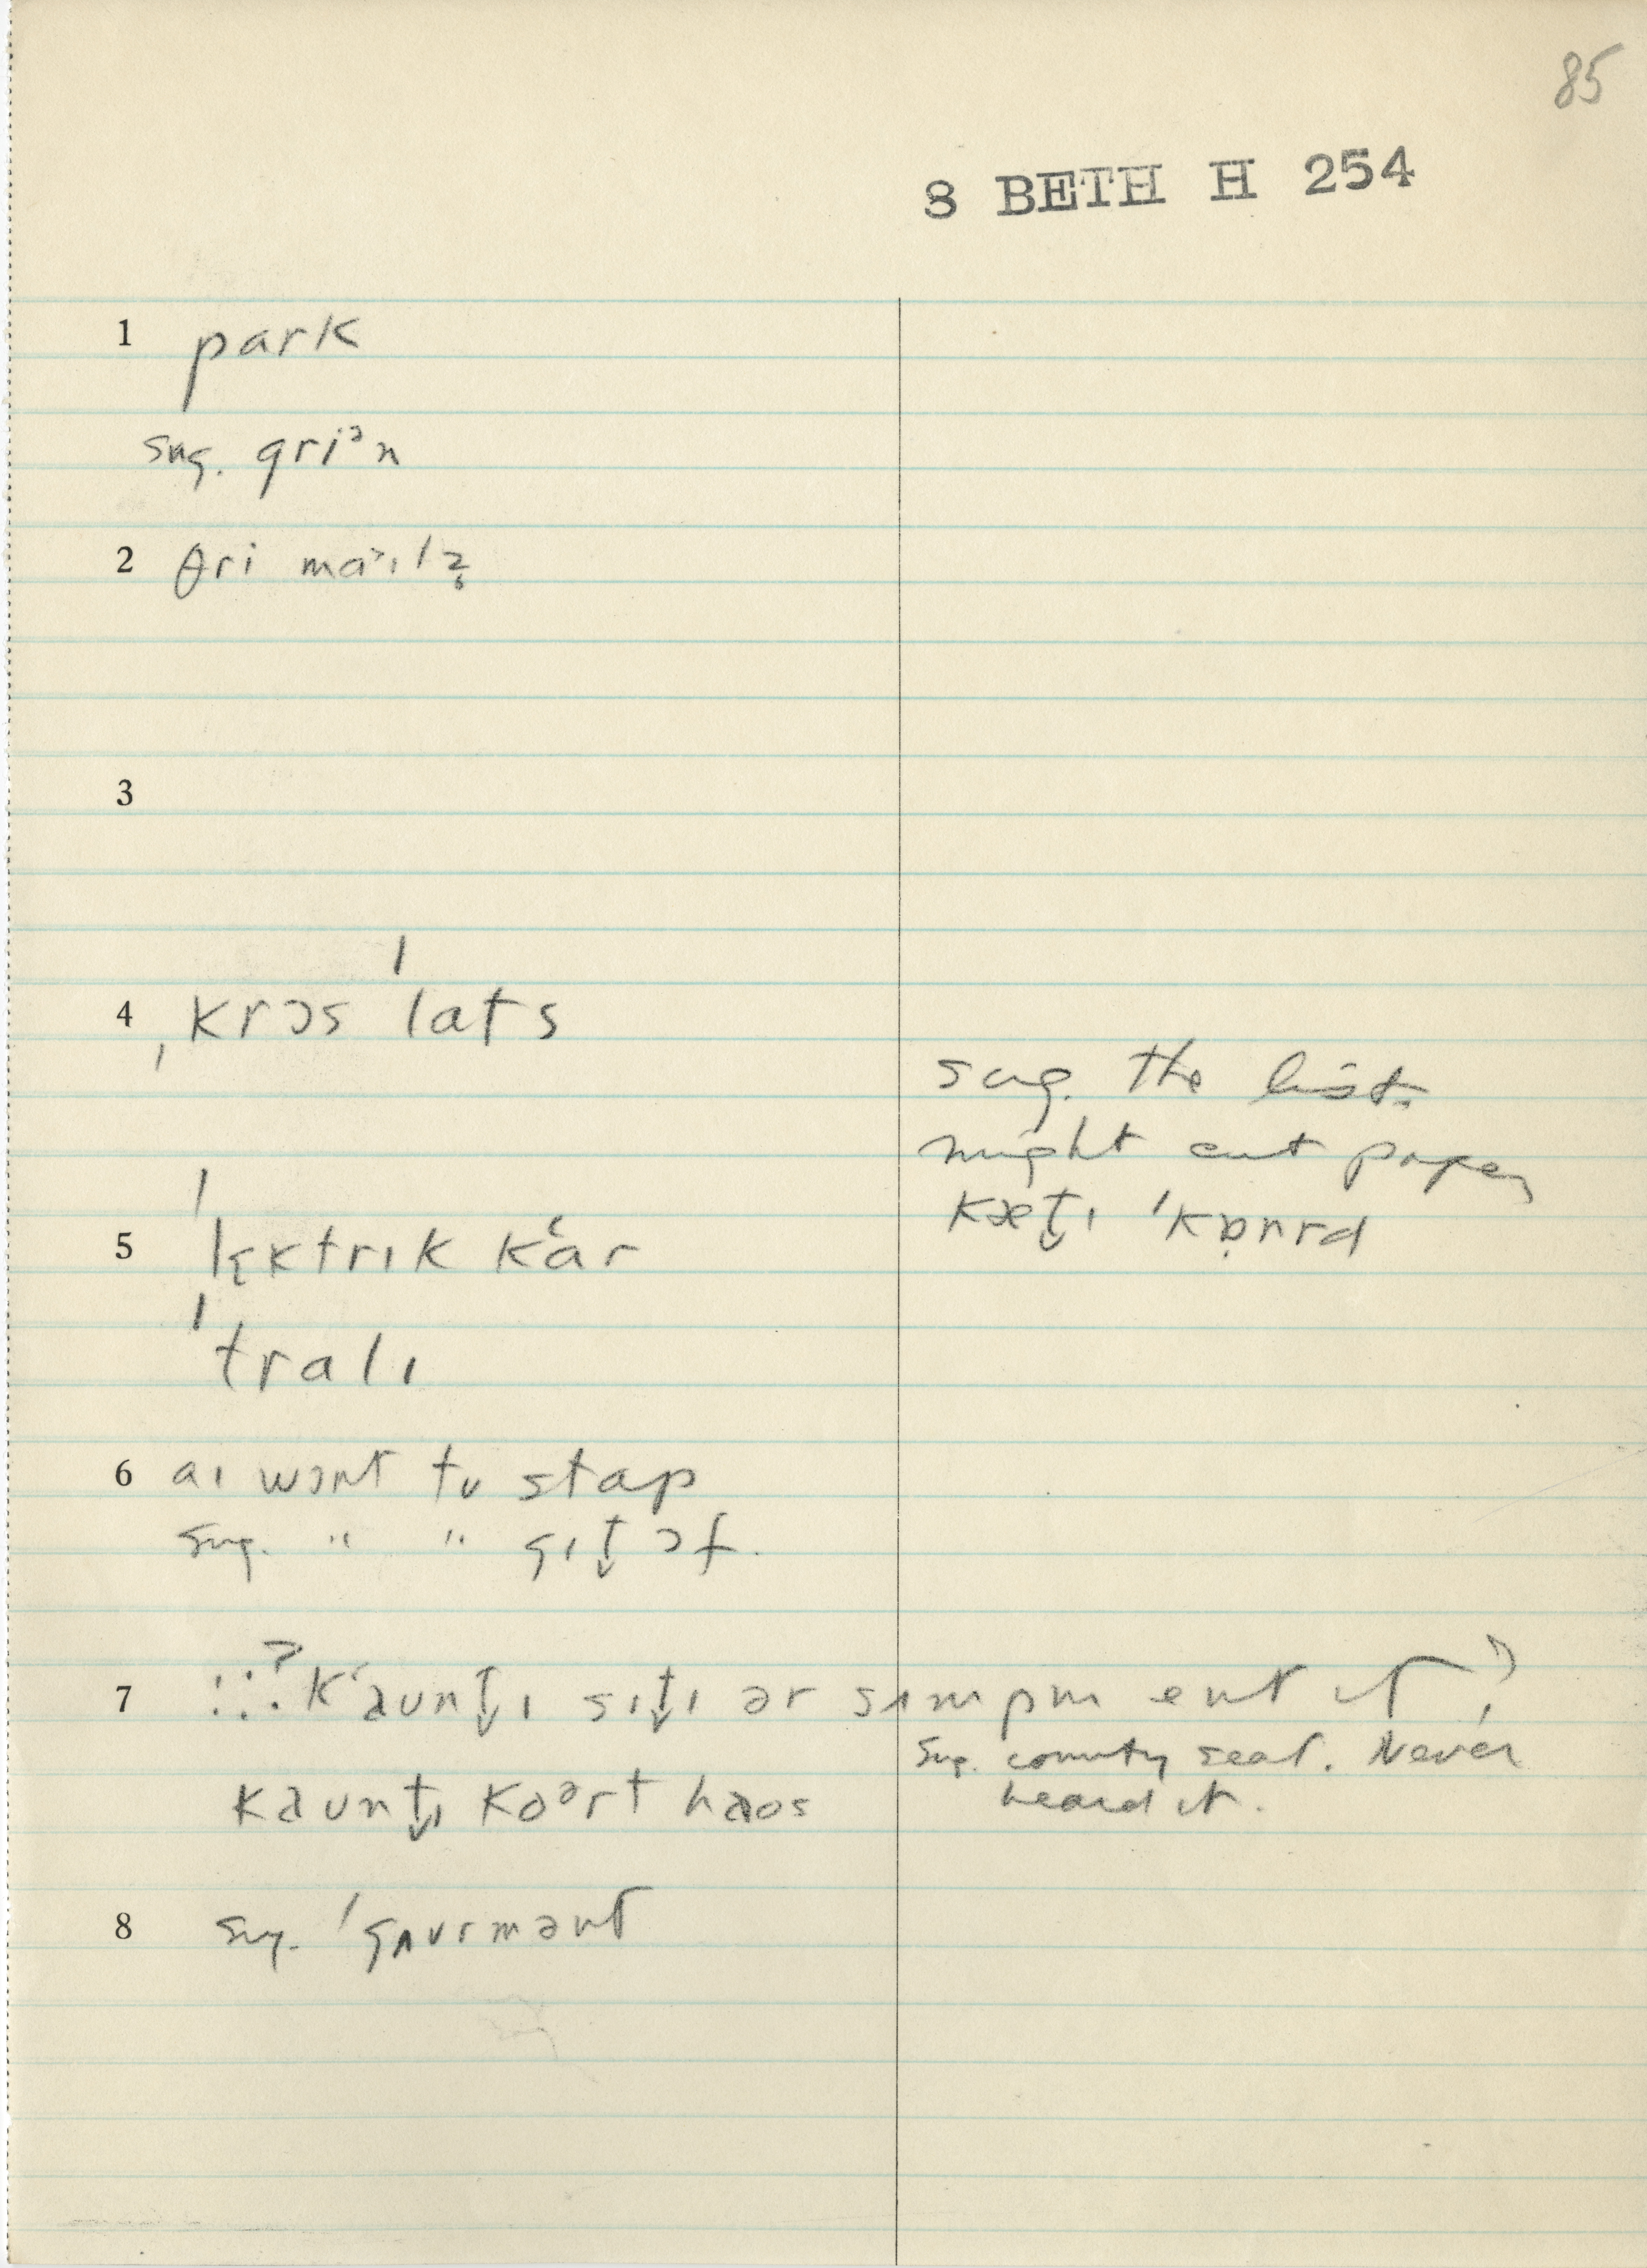 85
8 BETH H 254
1 park
sug. gri ᵊn
2 θri maˑɪlz̥
3
4 ˌkrɔs ˈlats
sug. the list.
might cut paper
kæt̬ɪ ˈkɒnrd
5 ˈlɛktrɪk kar
ˈtralɪ
6 aɪ wɔnt tʊ stap
sug. " " gɪt̬ ɔf.
7 kaunt̬ɪ sɪt̬ɪ ər sʌmpm ent it?
sug. county seat. Never
heard it.
kaunt̬ɪ koᵊrt haos
8 sug. ˈgʌvrmənt